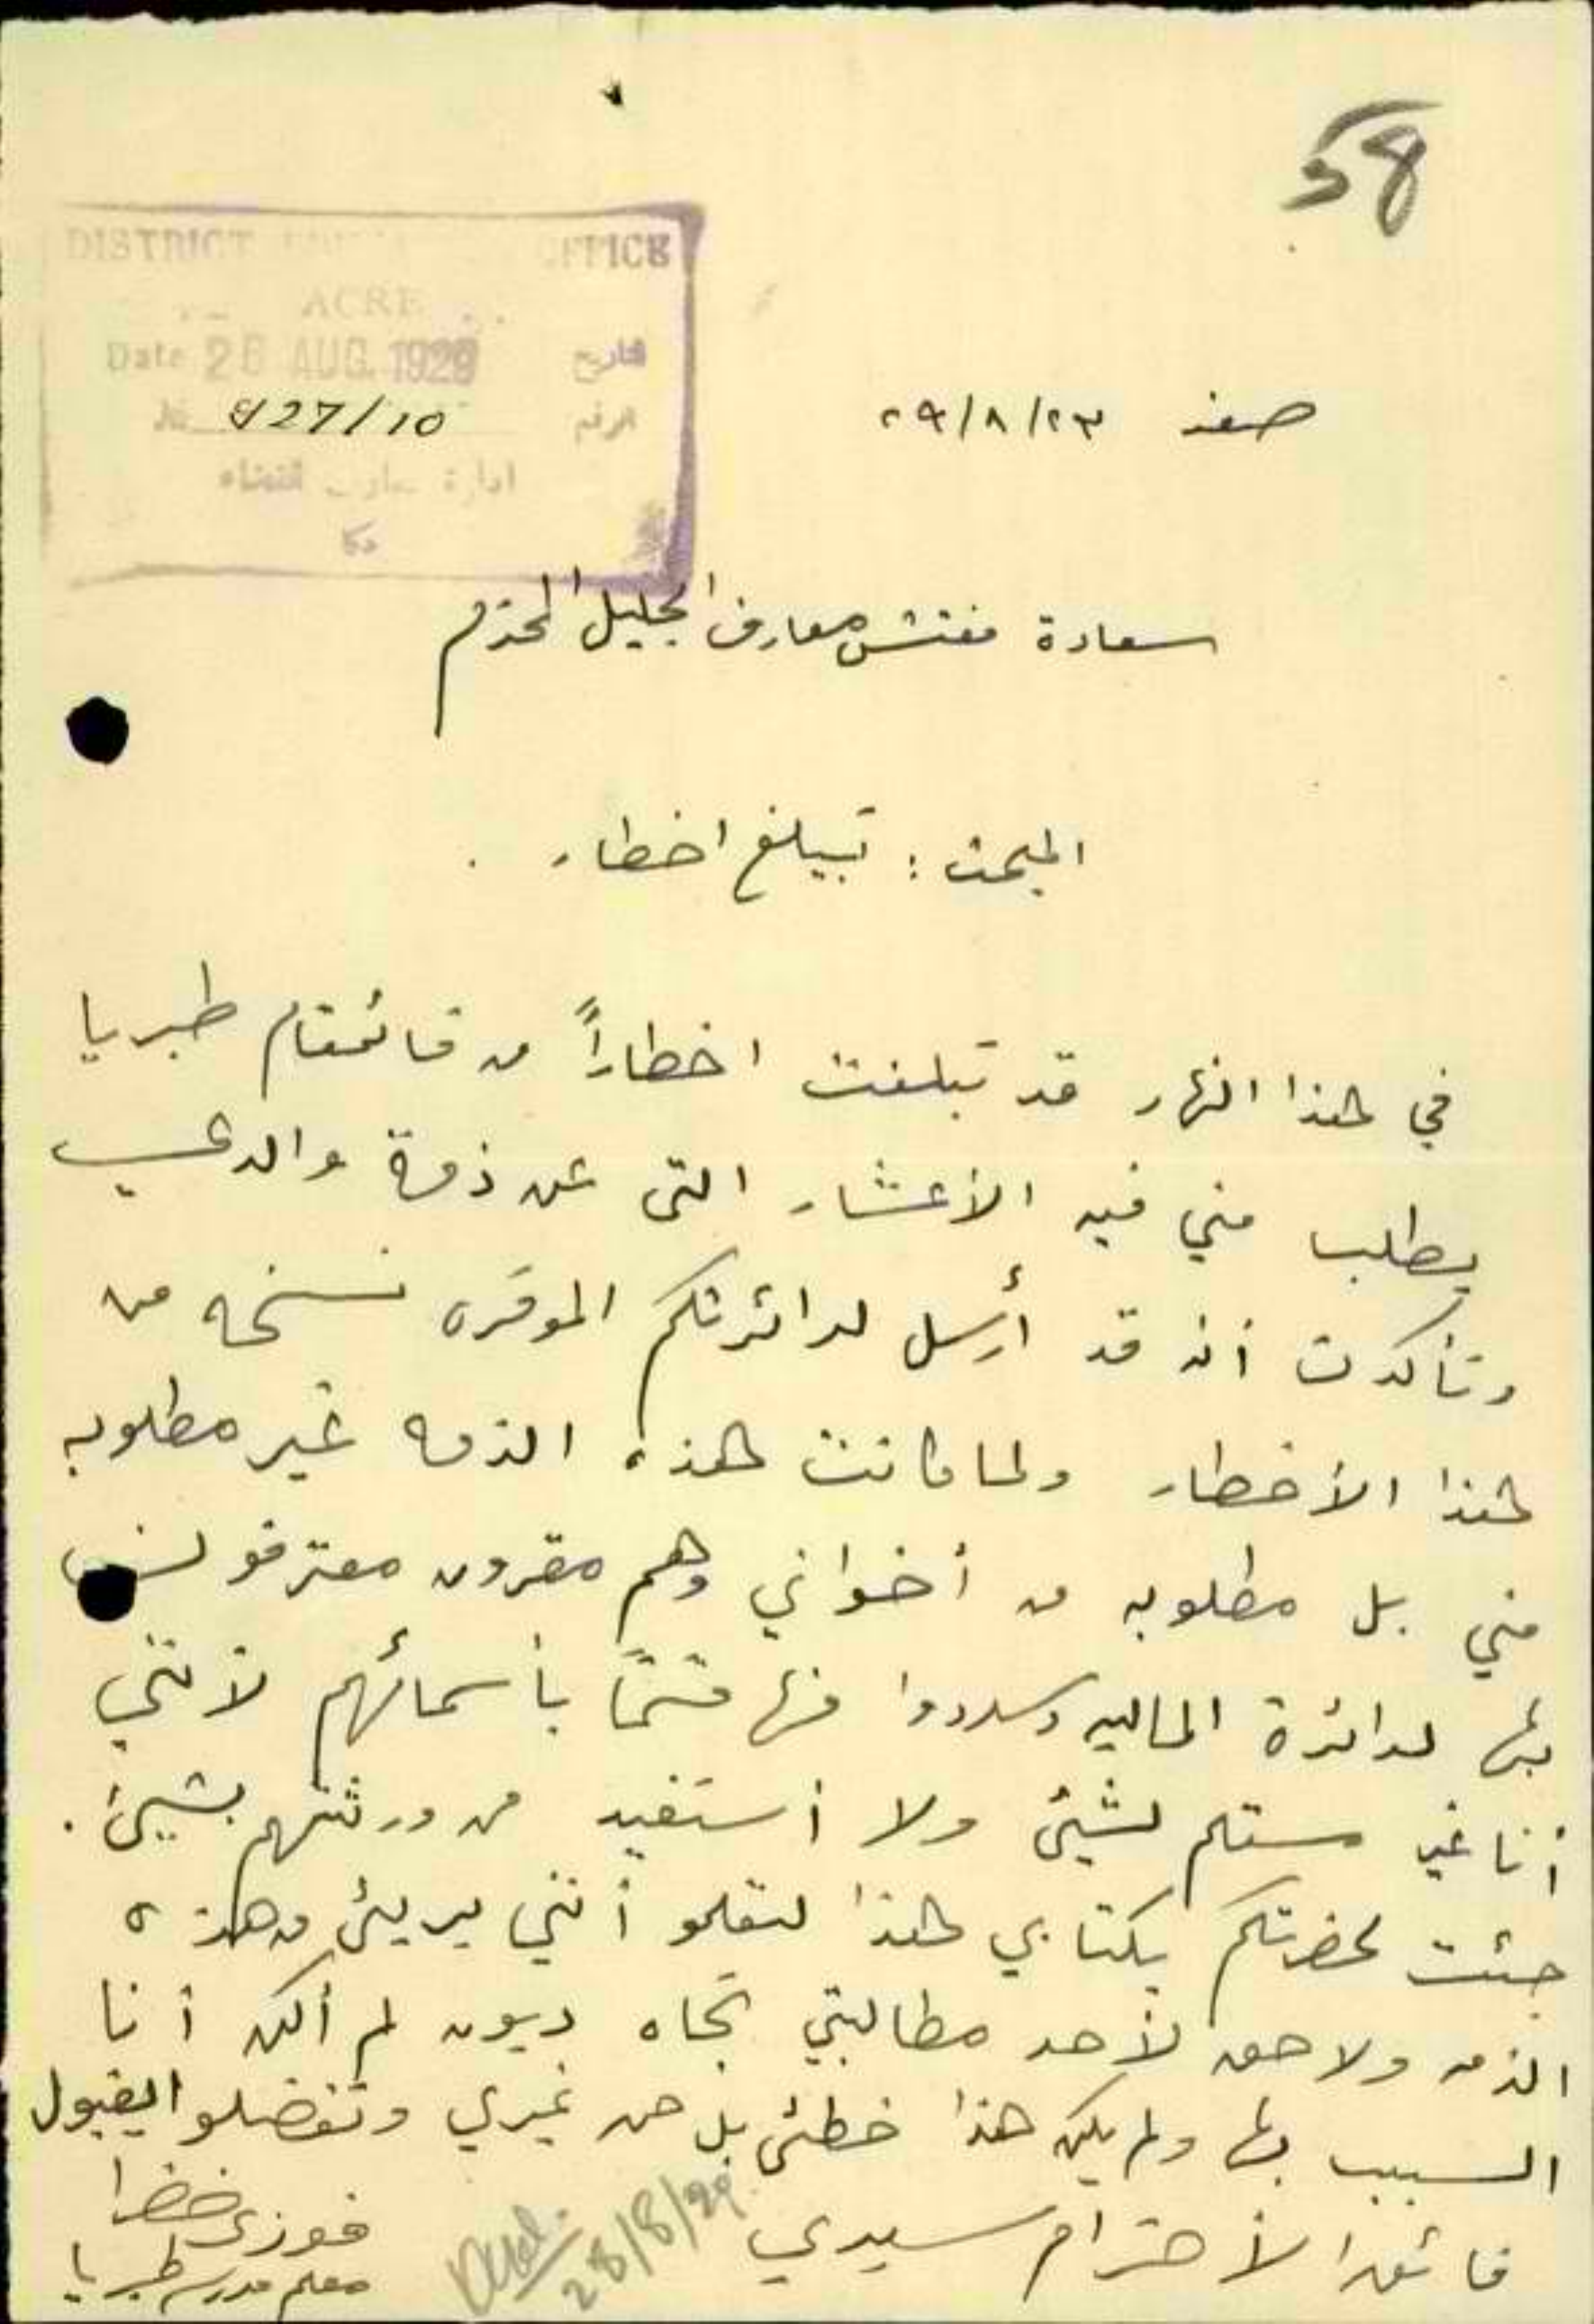 58
DISTRICT OFFICE
ACRE
Date 28 AUG. 1929 التاريخ
No 927/10 الرقم
ادارة معارف القضاء
عكا
صفد ٢٩/٨/٢٣
سعادة مفتش معارف الجليل المحترم
المبحث : تبيلغ اخطار .
في هذا النهار قد تبلغت اخطاراً من قائمقام طبريا
يطلب مني فيه الأعشار التي عن ذمة والدي
وتأكدت أنه قد أرسل لدائرتكم الموقره نسخه من
هذا الأخطار ولما كانت هذه الذمه غير مطلوبه
مني بل مطلوبه من أخواني وهم مقرون معترفون
بها لدائرة الماليه وسددوا منها قسمًا بأسمائهم لأنني
أنا غير مستلم لشيئ ولا أستفيد من ورثتهم بشيئ .
جئت لحضرتكم بكتابي هذا لتعلمو أنني بريئ من هذه
الذمه ولا حق لأحد مطالبتي تجاه ديون لم أكن أنا
السبب بها ولم يكن هذا خطئي بل من غيري وتفضلوا بقبول
فائق الأحترام سيدي
فوزي خضرا
معلم مدرسة طبريا
28/8/29.